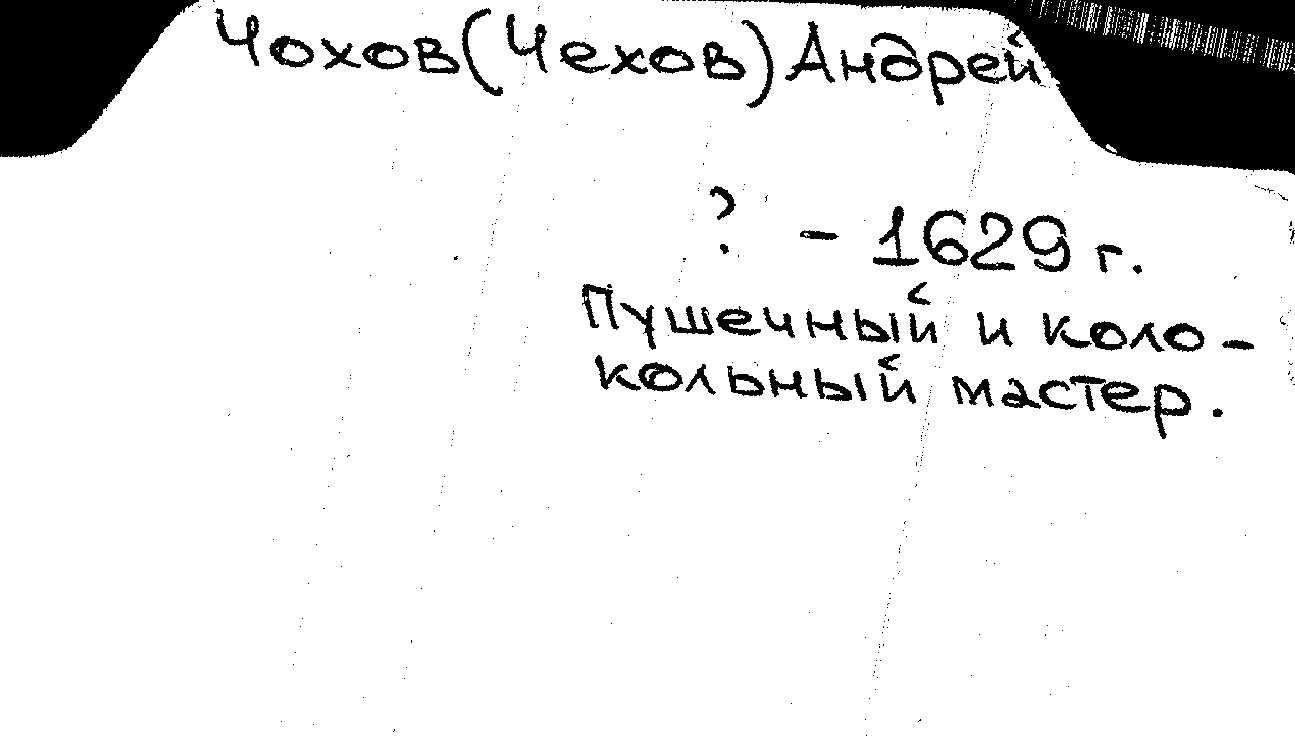 Чохов (Чехов) Андрей
? – 1629 г.
Пушечный и коло-
кольный мастер.